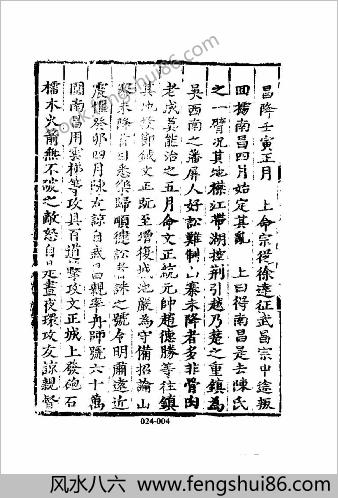 www.fengshui86.com
昌降壬寅正月　上命宗從徐達征武昌宗中途叛
囬掠南昌四月始定其亂　上曰得南昌是去陳氏
之一臂況其地襟江帶湖控荆引越乃楚之重鎮為
吳西南之藩屏人好訟難制山寨未降者多非骨肉
老成莫能治之五月命文正統元帥趙德勝等往鎮
其地授鈇鉞文正既至增復城池嚴為守備招諭山
寨未降
歸順
之號令明肅遠近
震懼癸卯四月陳友諒自武昌親率舟師號六十萬
圍南昌用雲梯等攻具百道
攻文正城上發砲石
檑木火箭無不破之敵怒自是晝夜環攻友諒親督
024-004
风水八六 - fengshui86.com